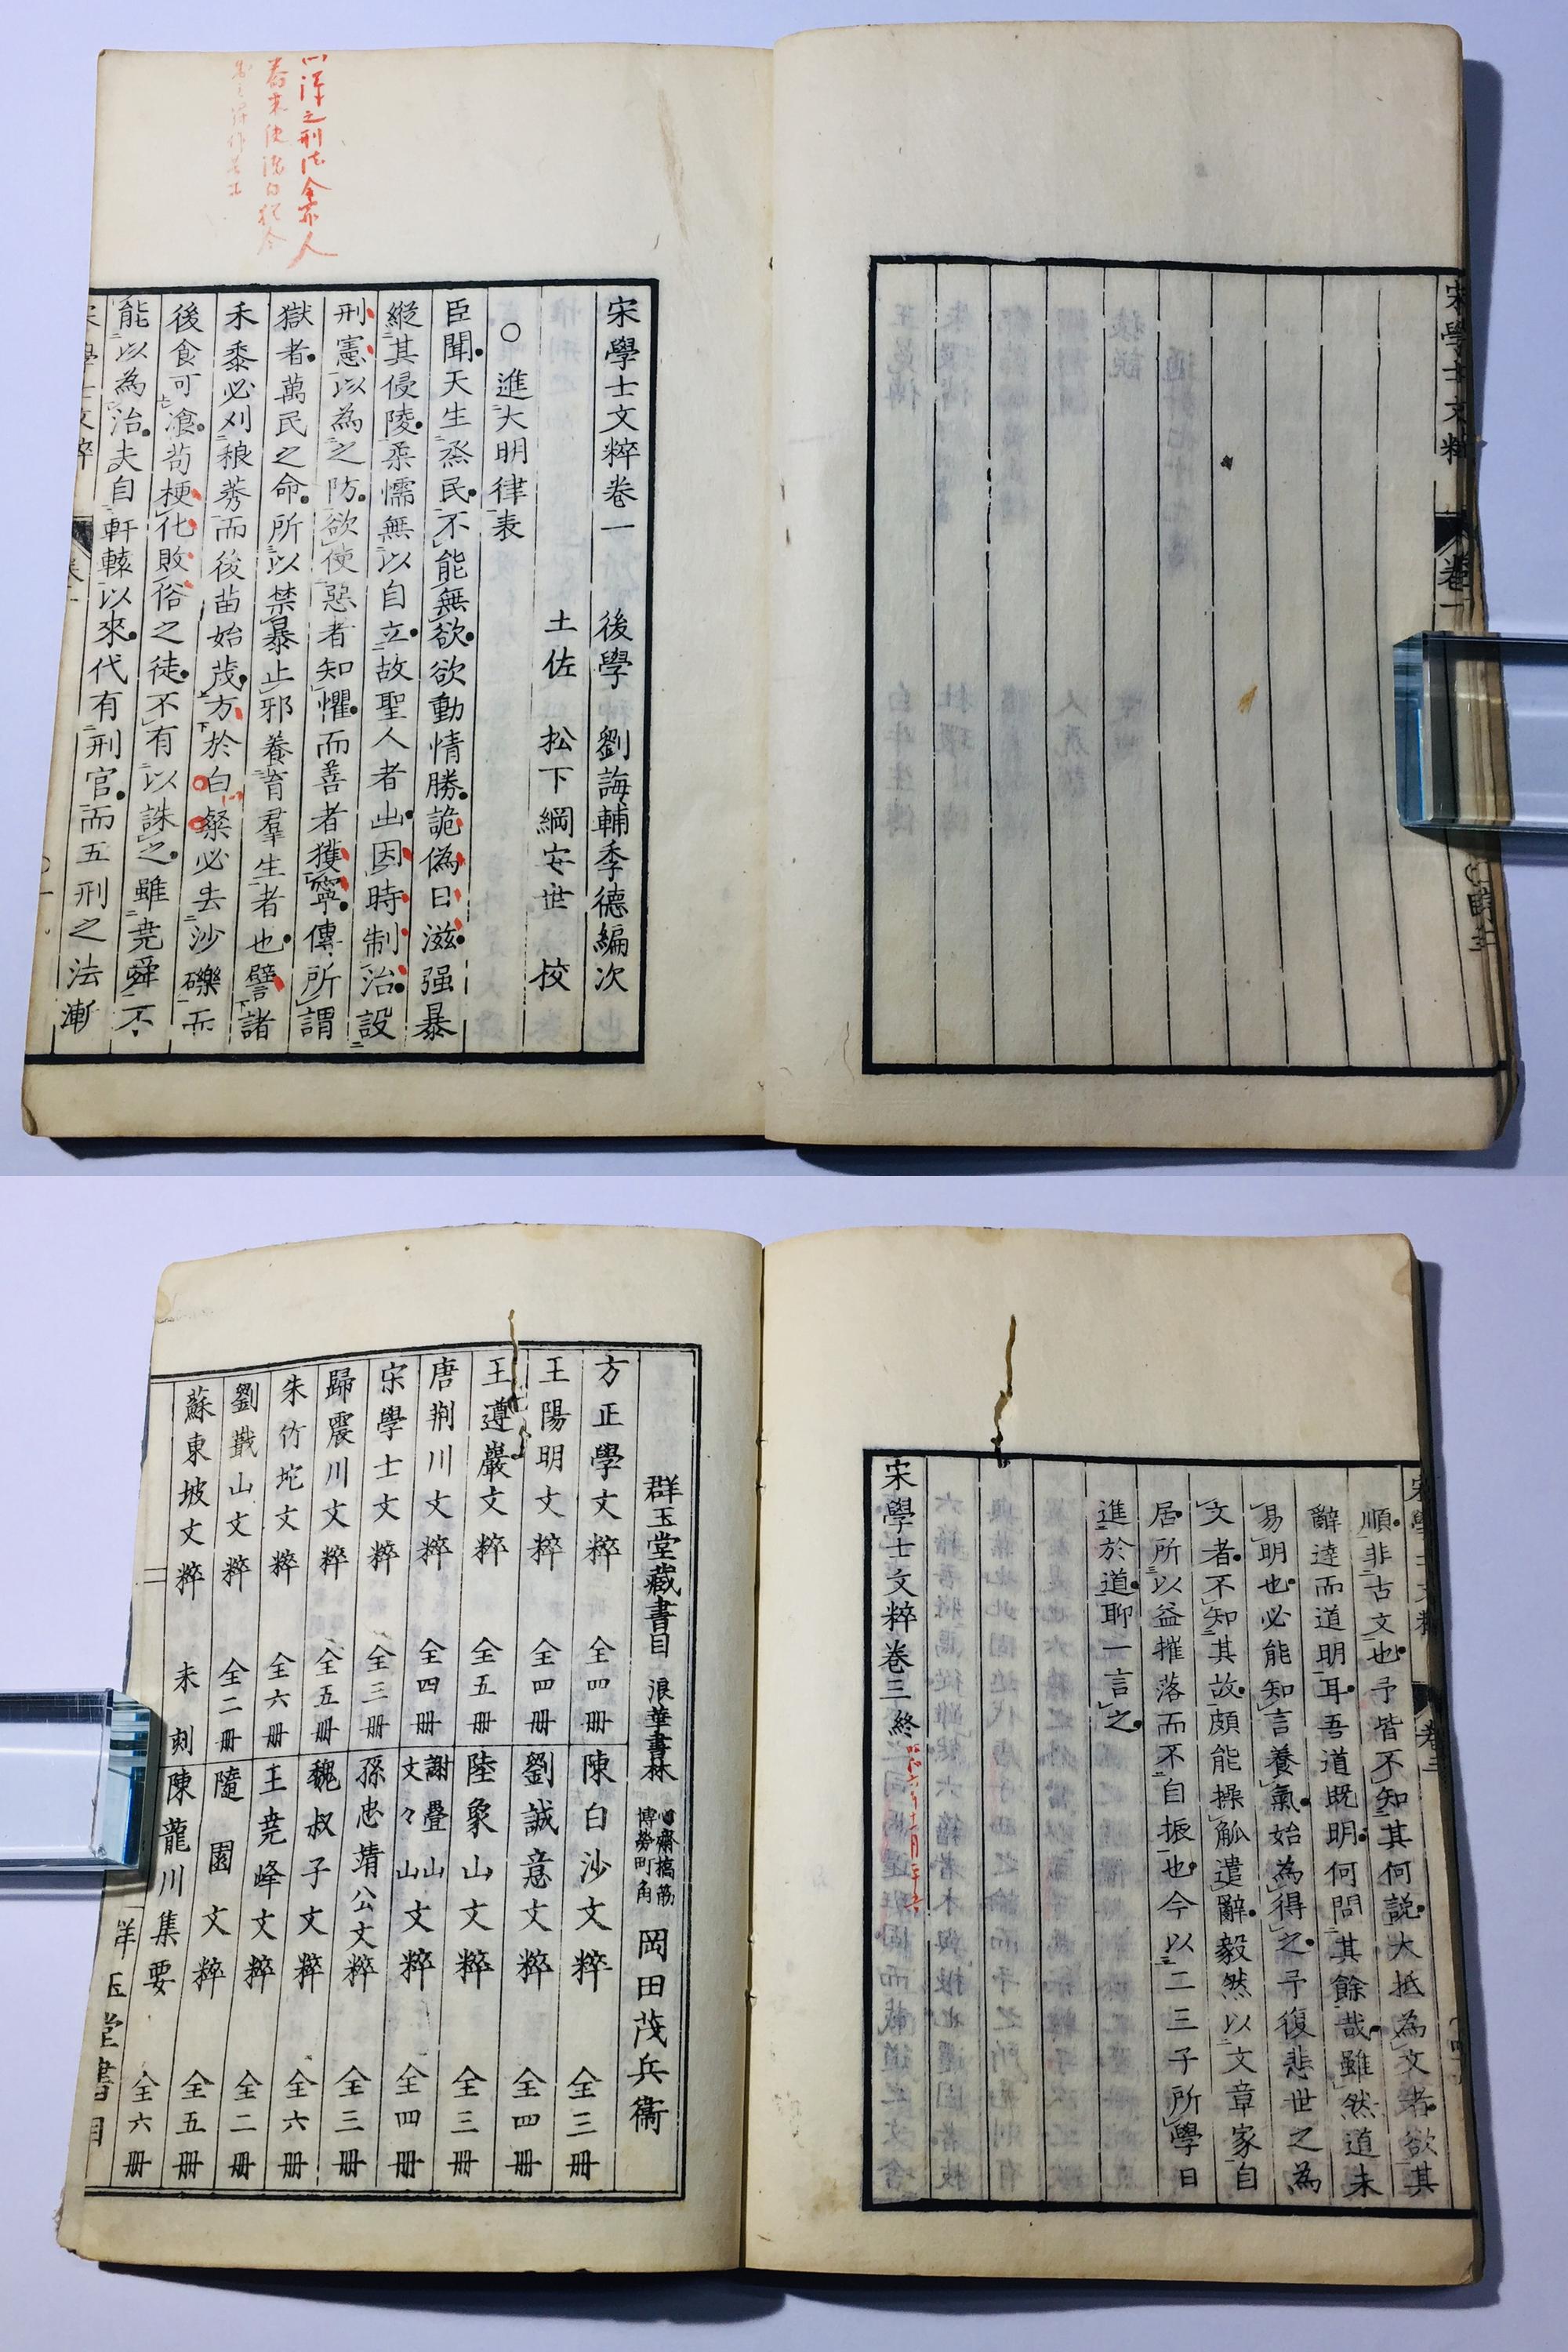 宋學士文粹
卷一
宋學士文粹卷一 後學 劉誨輔季德編次
土佐 松下綱安世 校
○進大明律表
臣聞天生烝民不能無欲欲動情勝詭偽日滋强暴
縱其侵陵柔懦無以自立故聖人者出因時制治設
刑憲以為之防欲使惡者知懼而善者獲寧傳所謂
獄者萬民之命所以禁暴止邪養育羣生者也譬諸
禾黍必刈稂莠而後苗始茂方於白粲必去沙礫而
後食可飡苟梗化敗俗之徒不有以誅之雖堯舜不
能以為治夫自軒轅以來代有刑官而五刑之法漸
宋學士文粹
卷一
宋學士文粹
卷三
順非古文也予皆不知其何說大抵為文者欲其
辭達而道明耳吾道既明何問其餘哉雖然道未
易明也必能知言養氣始為得之予復悲世之為
文者不知其故頗能操觚遣辭毅然以文章家自
居所以益摧落而不自振也今以二三子所學日
進於道聊一言之
宋學士文粹卷三終
群玉堂藏書目 浪華書林 心齋橋筋博勞町角 岡田茂兵衞
方正學文粹 全四册 陳白沙文粹 全三册
王陽明文粹 全四册 劉誠意文粹 全四册
王遵巖文粹 全五册 陸象山文粹 全三册
唐荆川文粹 全四册 謝疊山文々山文粹 全四册
宋學士文粹 全三册 孫忠靖公文粹 全三册
歸震川文粹 全五册 魏叔子文粹 全六册
朱竹坨文粹 全六册 王堯峰文粹 全二册
劉蕺山文粹 全二册 隨園文粹 全五册
蘇東坡文粹 未刻 陳龍川集要 全六册
群玉堂書目